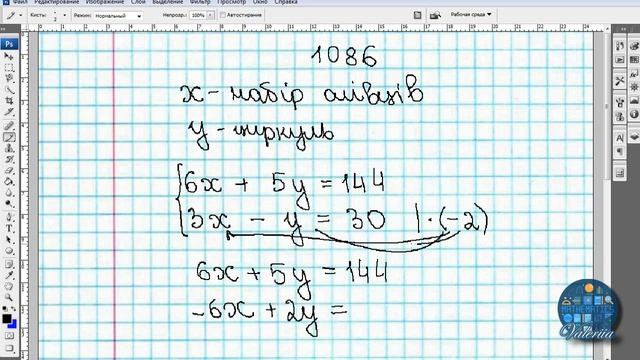 Редактирование Изображение Слои Выделение Фильтр Просмотр Окно Справка
Кисть: Режим: Нормальный Непрозр.: 100% Автостирание Рабочая среда
1086
x - набір олівців
y - циркуль
6x + 5y = 144
3x - y = 30 | · (-2)
6x + 5y = 144
-6x + 2y =
MATHEMATICS
Valeriia